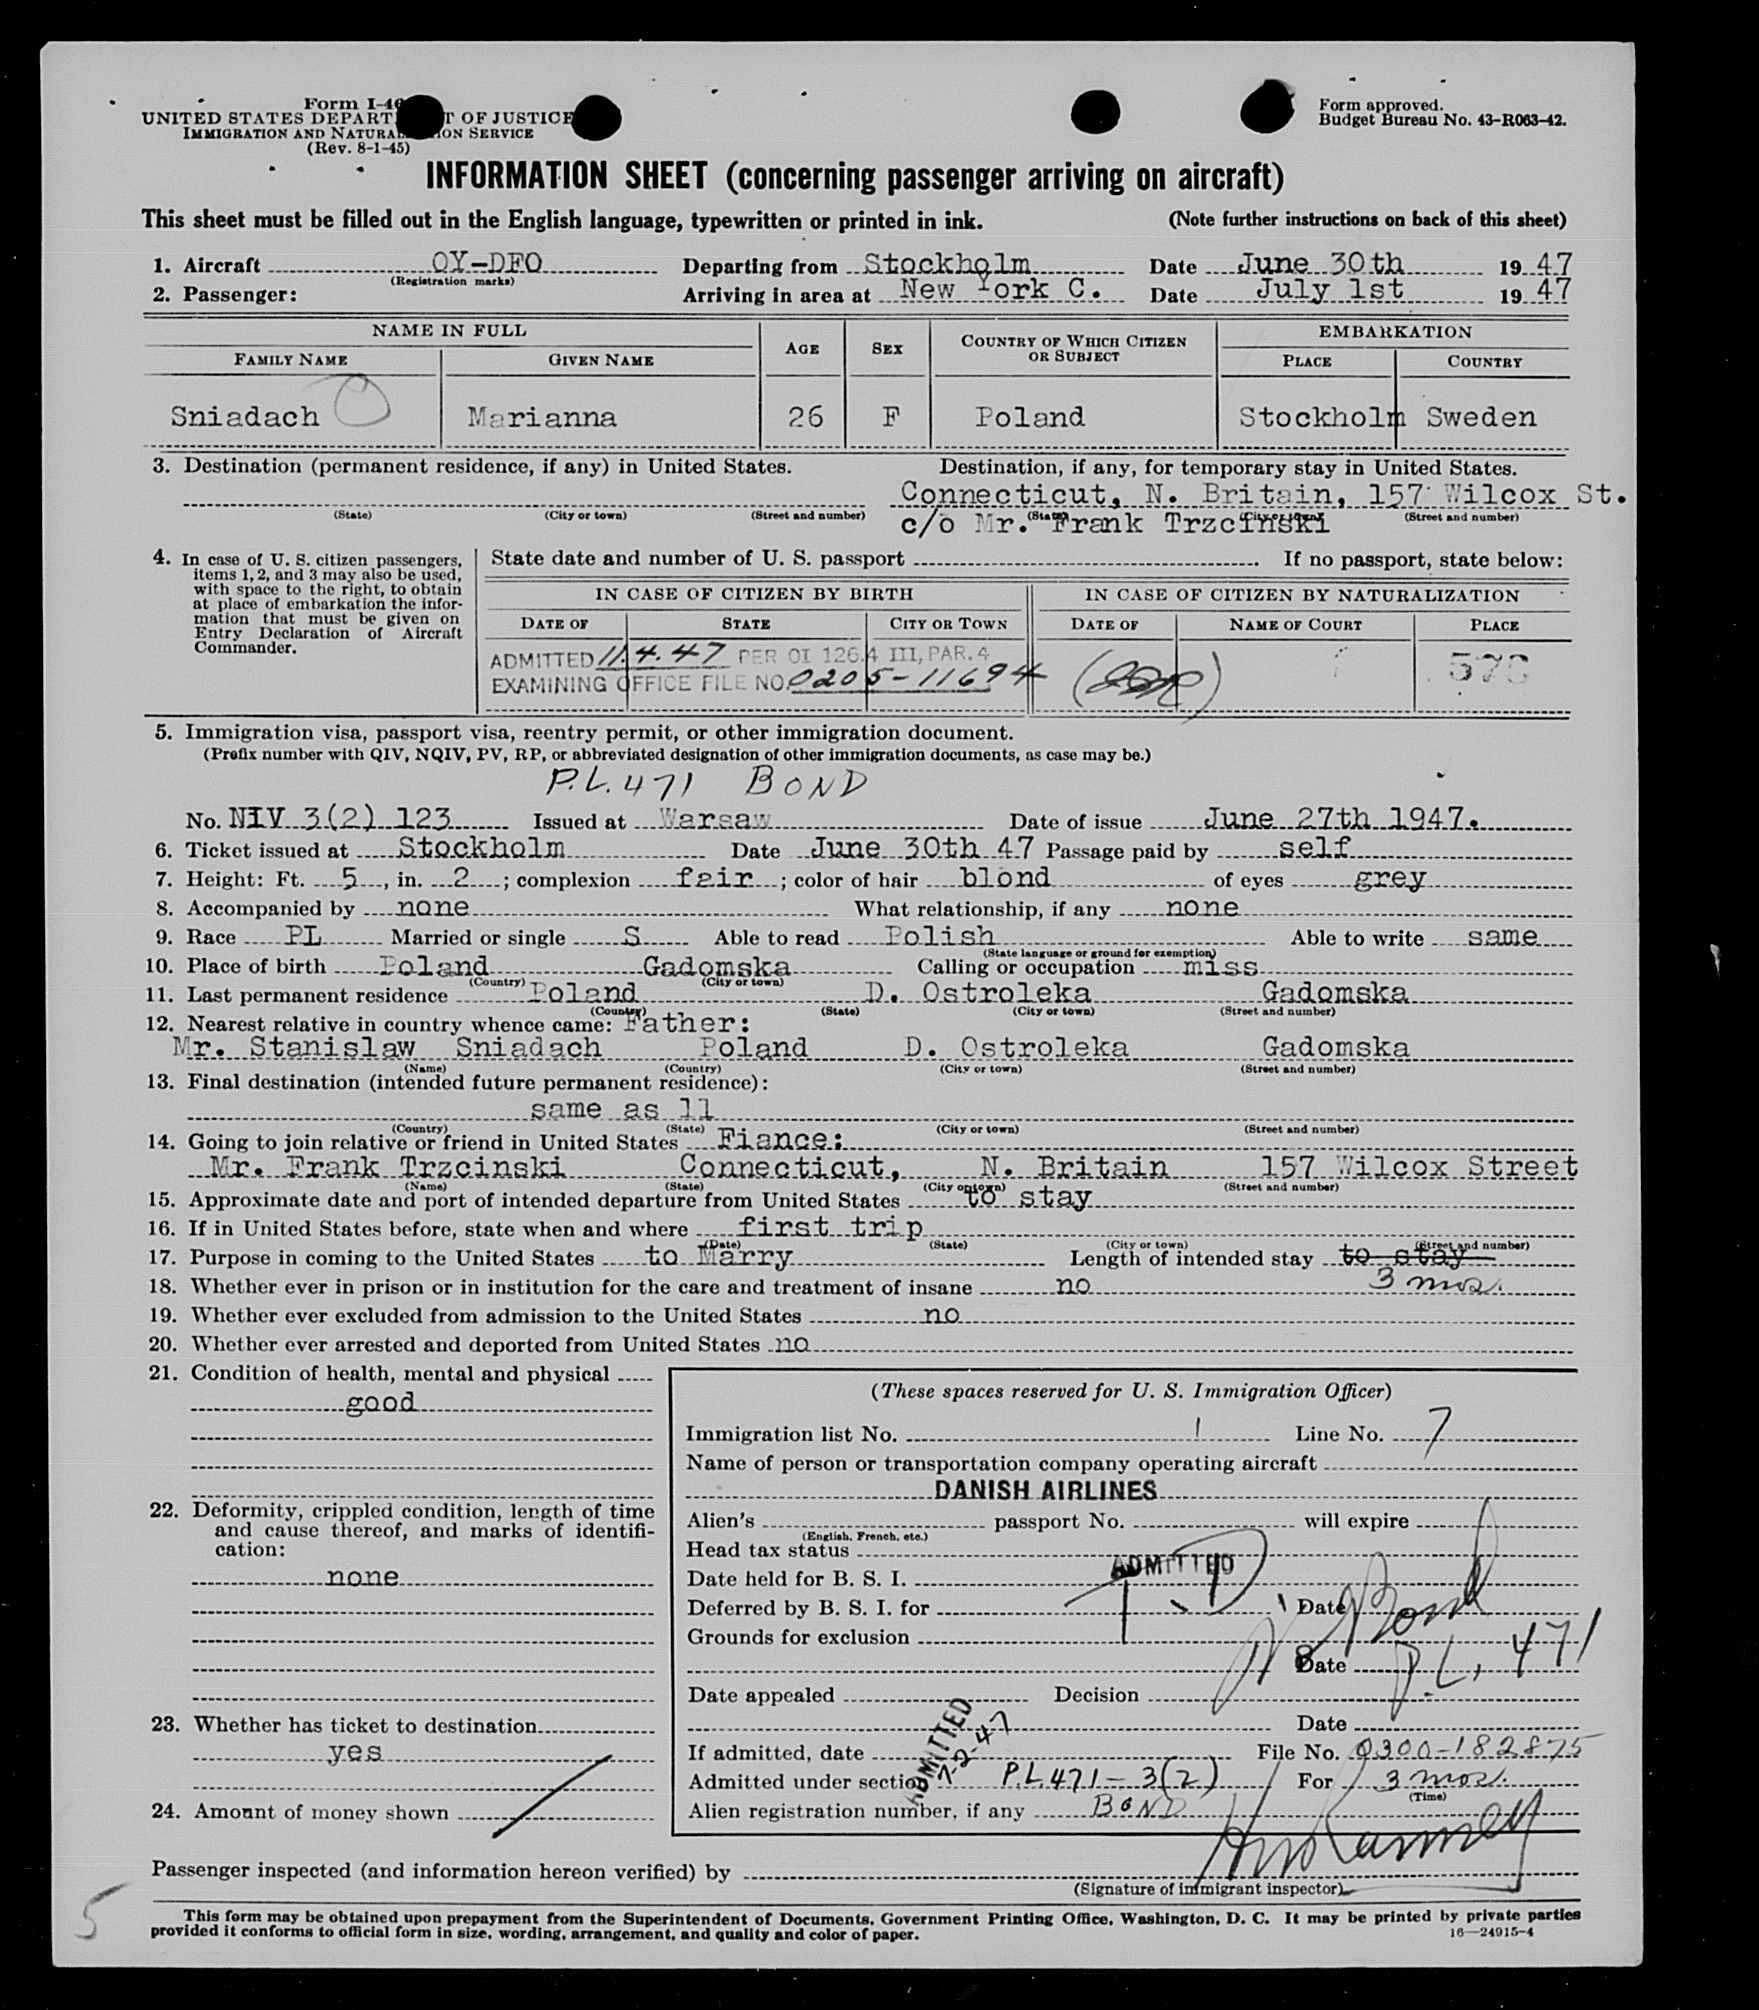 Form I-46
UNITED STATES DEPART T OF JUSTICE
IMMIGRATION AND NATURAL ION SERVICE
(Rev. 8-1-45)
Form approved.
Budget Bureau No. 43-R063-42.
INFORMATION SHEET (concerning passenger arriving on aircraft)
This sheet must be filled out in the English language, typewritten or printed in ink. (Note further instructions on back of this sheet)
1. Aircraft OY-DFO Departing from Stockholm Date June 30th 19 47
(Registration marks)
2. Passenger: Arriving in area at New York C. Date July 1st 19 47
NAME IN FULL AGE SEX COUNTRY OF WHICH CITIZEN OR SUBJECT EMBARKATION
FAMILY NAME GIVEN NAME PLACE COUNTRY
Sniadach Marianna 26 F Poland Stockholm Sweden
3. Destination (permanent residence, if any) in United States. Destination, if any, for temporary stay in United States.
Connecticut, N. Britain, 157 Wilcox St.
(State) (City or town) (Street and number) (State) (City or town) (Street and number)
c/o Mr. Frank Trzcinski
4. In case of U. S. citizen passengers, items 1, 2, and 3 may also be used, with space to the right, to obtain at place of embarkation the information that must be given on Entry Declaration of Aircraft Commander.
State date and number of U. S. passport If no passport, state below:
IN CASE OF CITIZEN BY BIRTH IN CASE OF CITIZEN BY NATURALIZATION
DATE OF STATE CITY OR TOWN DATE OF NAME OF COURT PLACE
ADMITTED 11.4.47 PER OI 126.4 III, PAR. 4
EXAMINING OFFICE FILE NO. 0205-11694
5. Immigration visa, passport visa, reentry permit, or other immigration document.
(Prefix number with QIV, NQIV, PV, RP, or abbreviated designation of other immigration documents, as case may be.)
P.L. 471 BOND
No. NIV 3(2) 123 Issued at Warsaw Date of issue June 27th 1947.
6. Ticket issued at Stockholm Date June 30th 47 Passage paid by self
7. Height: Ft. 5, in. 2; complexion fair; color of hair blond of eyes grey
8. Accompanied by none What relationship, if any none
9. Race PL Married or single S Able to read Polish Able to write same
(State language or ground for exemption)
10. Place of birth Poland Gadomska Calling or occupation miss
(Country) (City or town)
11. Last permanent residence Poland D. Ostroleka Gadomska
(Country) (State) (City or town) (Street and number)
12. Nearest relative in country whence came: Father:
Mr. Stanislaw Sniadach Poland D. Ostroleka Gadomska
(Name) (Country) (City or town) (Street and number)
13. Final destination (intended future permanent residence):
same as 11
(Country) (State) (City or town) (Street and number)
14. Going to join relative or friend in United States Fiance:
Mr. Frank Trzcinski Connecticut, N. Britain 157 Wilcox Street
(Name) (State) (City or town) (Street and number)
15. Approximate date and port of intended departure from United States to stay
16. If in United States before, state when and where first trip
(Date) (State) (City or town) (Street and number)
17. Purpose in coming to the United States to Marry Length of intended stay to stay
18. Whether ever in prison or in institution for the care and treatment of insane no 3 mos.
19. Whether ever excluded from admission to the United States no
20. Whether ever arrested and deported from United States no
21. Condition of health, mental and physical
good
22. Deformity, crippled condition, length of time and cause thereof, and marks of identification:
none
23. Whether has ticket to destination
yes
24. Amount of money shown
(These spaces reserved for U. S. Immigration Officer)
Immigration list No. 1 Line No. 7
Name of person or transportation company operating aircraft
DANISH AIRLINES
Alien's passport No. will expire
(English, French, etc.)
Head tax status
ADMITTED
Date held for B. S. I.
Deferred by B. S. I. for Date
Bond
Grounds for exclusion
Date P.L. 471
Date appealed Decision
Date
ADMITTED
7-2-47
If admitted, date File No. 0300-182875
Admitted under section P.L. 471-3(2) For 3 mos.
(Time)
Alien registration number, if any BOND
Passenger inspected (and information hereon verified) by
(Signature of immigrant inspector)
5
This form may be obtained upon prepayment from the Superintendent of Documents, Government Printing Office, Washington, D. C. It may be printed by private parties
provided it conforms to official form in size, wording, arrangement, and quality and color of paper. 16—24915-4